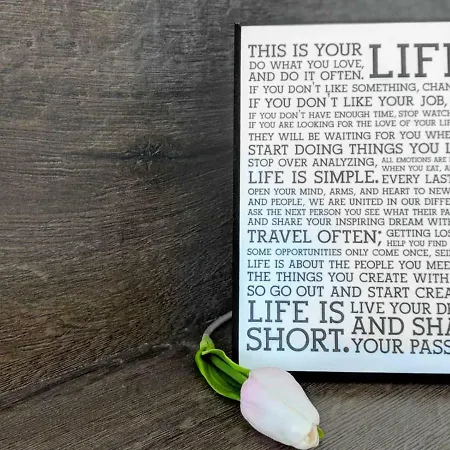 THIS IS YOUR LIF
DO WHAT YOU LOVE,
AND DO IT OFTEN.
IF YOU DON'T LIKE SOMETHING, CHAN
IF YOU DON'T LIKE YOUR JOB,
IF YOU DON'T HAVE ENOUGH TIME, STOP WATCH
IF YOU ARE LOOKING FOR THE LOVE OF YOUR LIF
THEY WILL BE WAITING FOR YOU WHE
START DOING THINGS YOU L
STOP OVER ANALYZING, ALL EMOTIONS ARE
WHEN YOU EAT, A
LIFE IS SIMPLE. EVERY LAST
OPEN YOUR MIND, ARMS, AND HEART TO NEW
AND PEOPLE, WE ARE UNITED IN OUR DIFFE
ASK THE NEXT PERSON YOU SEE WHAT THEIR PA
AND SHARE YOUR INSPIRING DREAM WITH
TRAVEL OFTEN; GETTING LOS
HELP YOU FIND
SOME OPPORTUNITIES ONLY COME ONCE, SEI
LIFE IS ABOUT THE PEOPLE YOU MEE
THE THINGS YOU CREATE WITH
SO GO OUT AND START CREA
LIFE IS LIVE YOUR DR
SHORT. AND SHA
YOUR PASS